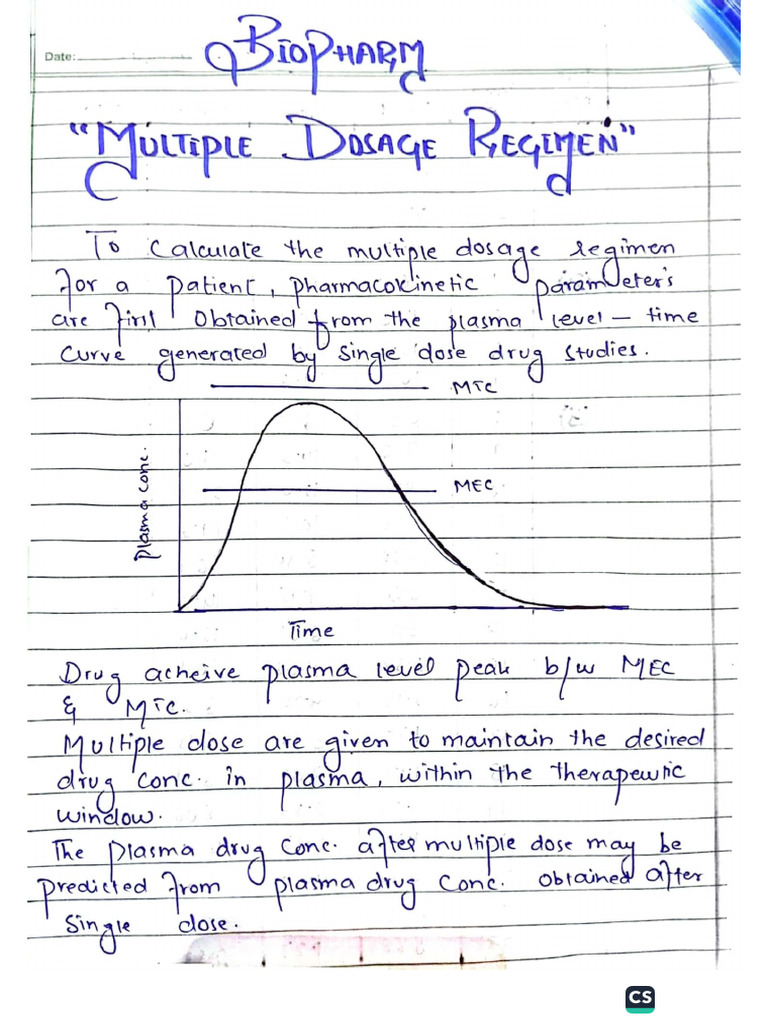 Date:
BIOPHARM
"MULTIPLE DOSAGE REGIMEN"
To calculate the multiple dosage regimen
for a patient, pharmacokinetic parameter's
are first obtained from the plasma level - time
curve generated by single dose drug studies.
MTC
MEC
Plasma conc.
Time
Drug acheive plasma level peak b/w MEC
& MTC.
Multiple dose are given to maintain the desired
drug conc. in plasma, within the therapeutic
window.
The plasma drug conc. after multiple dose may be
predicted from plasma drug conc. obtained after
single dose.
CS